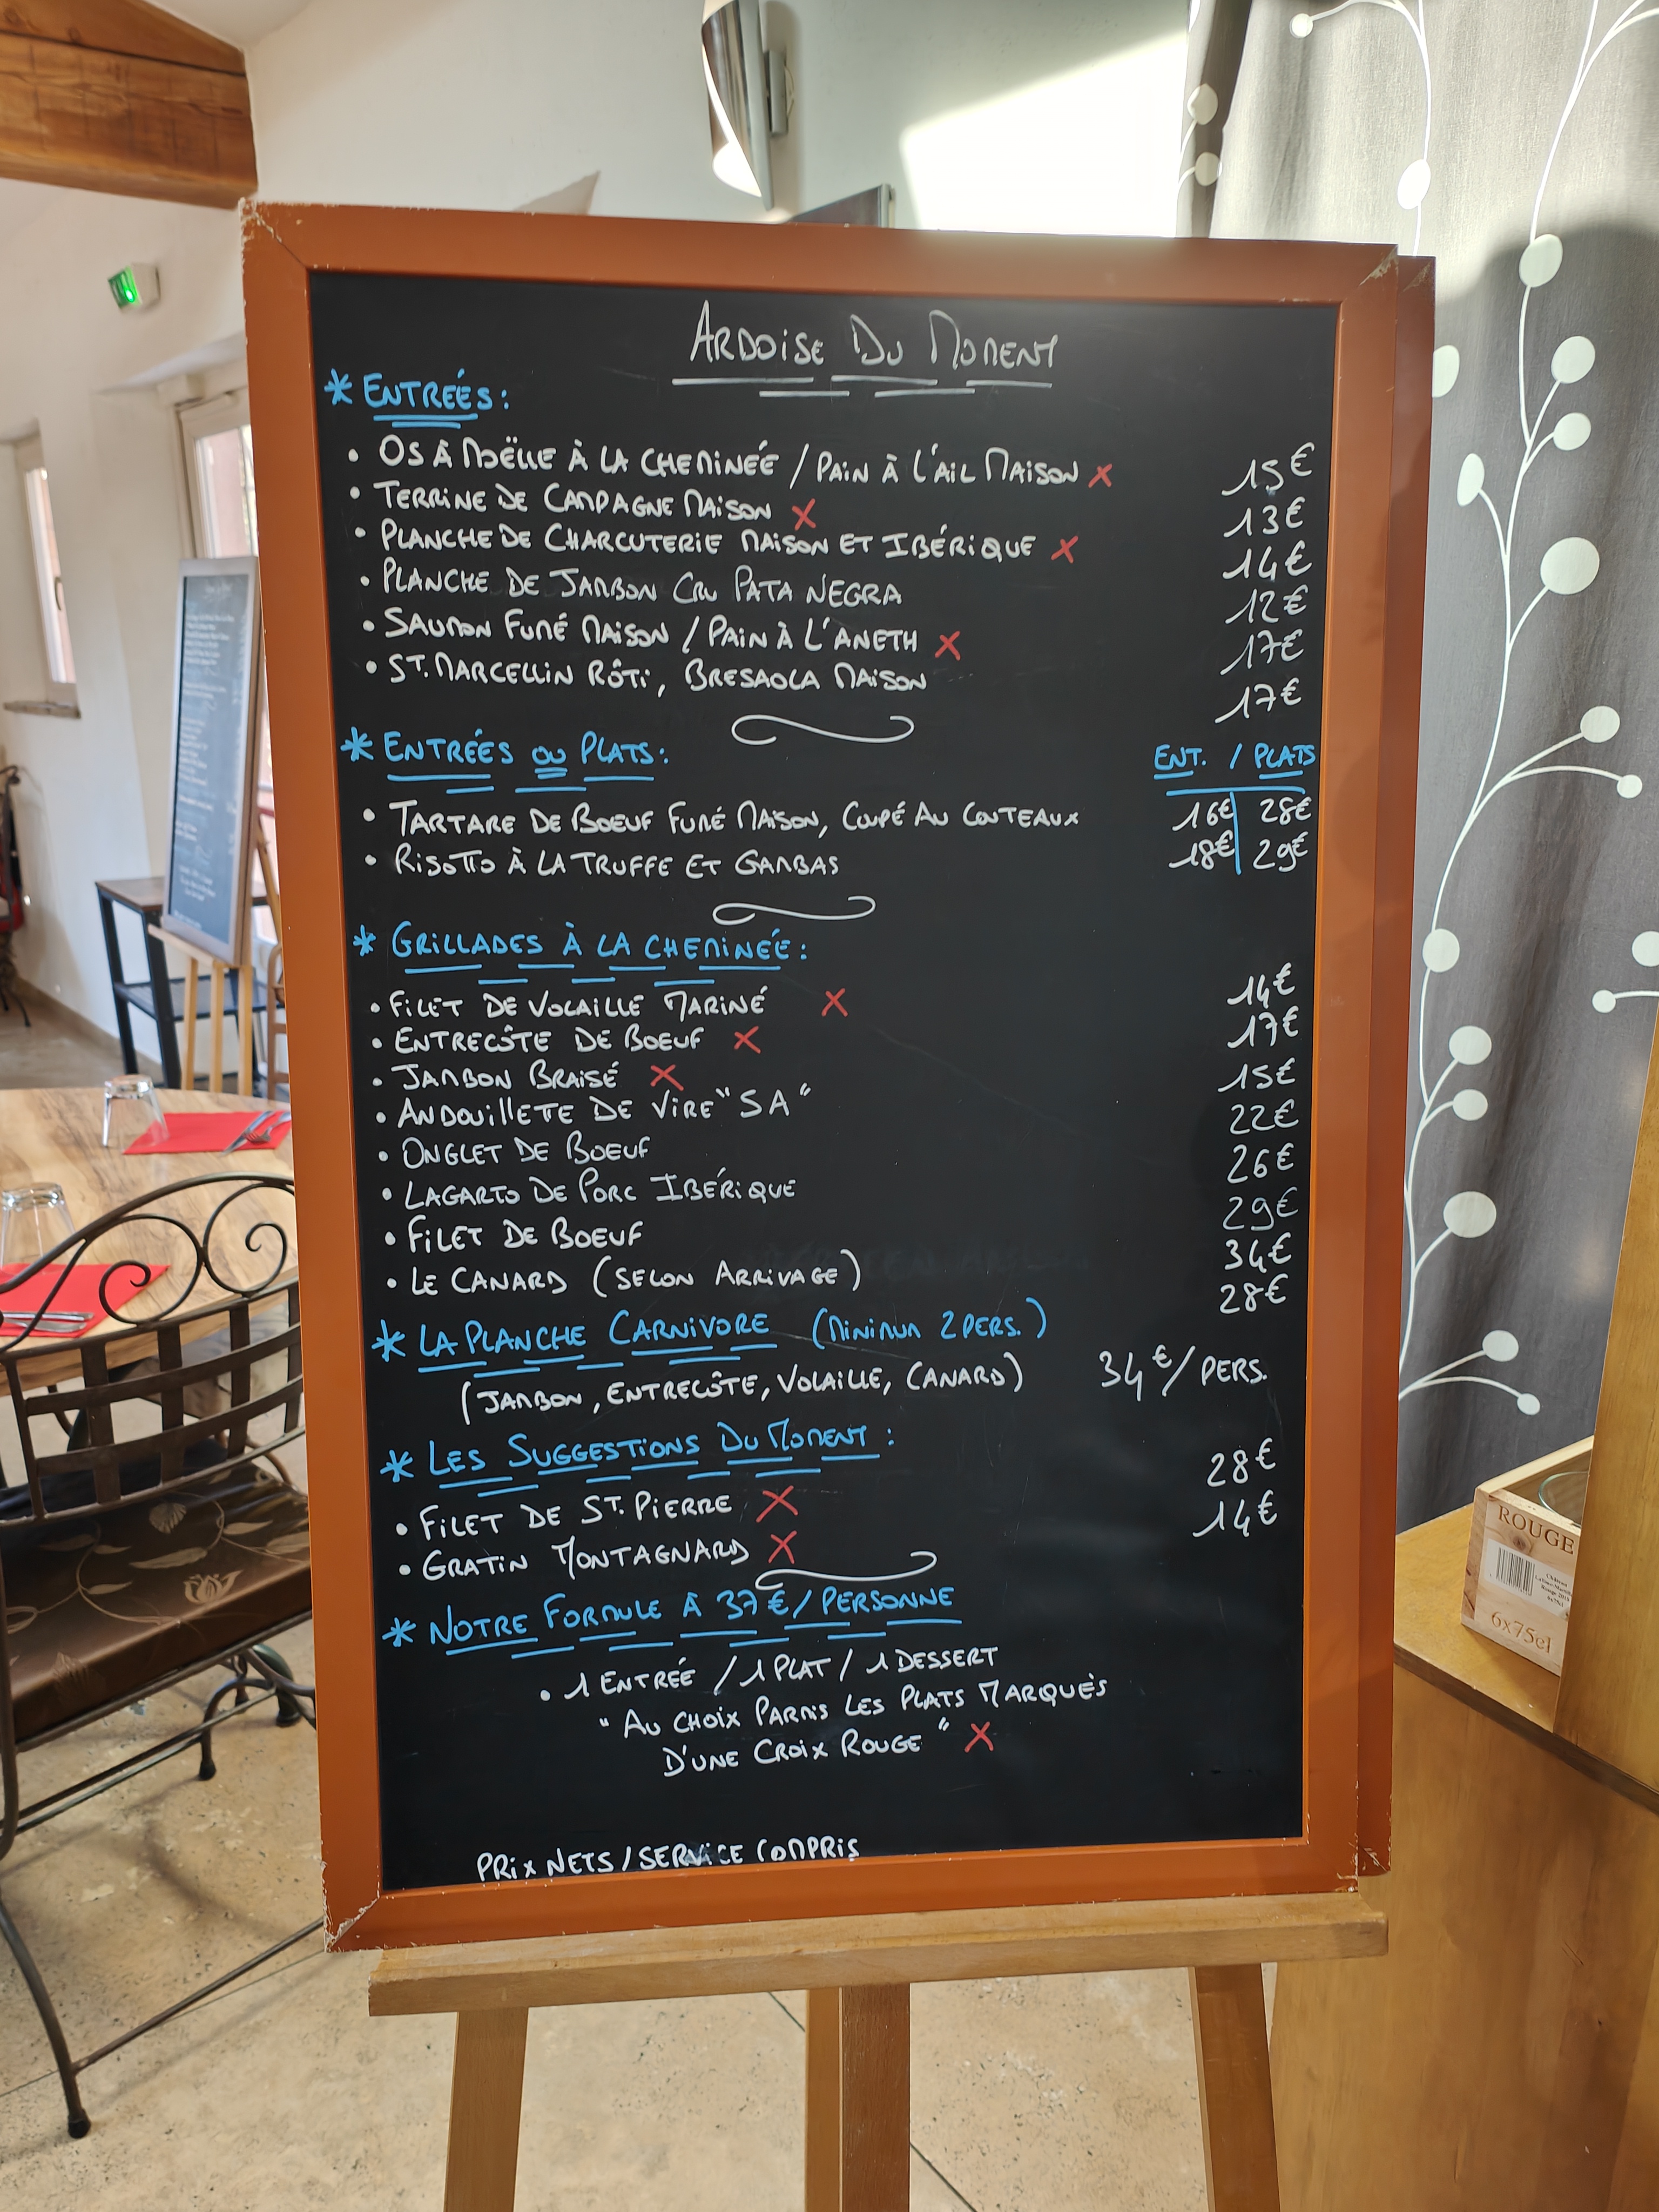 ARDOISE DU MOMENT
* ENTRÉES :
• OS À MOËLLE À LA CHEMINÉE / PAIN À L'AIL MAISON X 15€
• TERRINE DE CAMPAGNE MAISON X 13€
• PLANCHE DE CHARCUTERIE MAISON ET IBÉRIQUE X 14€
• PLANCHE DE JAMBON CRU PATA NEGRA 12€
• SAUMON FUMÉ MAISON / PAIN À L'ANETH X 17€
• ST. MARCELLIN RÔTI, BRESAOLA MAISON 17€
* ENTRÉES OU PLATS : ENT. / PLATS
• TARTARE DE BOEUF FUMÉ MAISON, COUPÉ AU COUTEAUX 16€ | 28€
• RISOTTO À LA TRUFFE ET GAMBAS 18€ | 29€
* GRILLADES À LA CHEMINÉE :
• FILET DE VOLAILLE MARINÉ X 14€
• ENTRECÔTE DE BOEUF X 17€
• JAMBON BRAISÉ X 15€
• ANDOUILLETTE DE VIRE "5A" 22€
• ONGLET DE BOEUF 26€
• LAGARTO DE PORC IBÉRIQUE 29€
• FILET DE BOEUF 34€
• LE CANARD (SELON ARRIVAGE) 28€
* LA PLANCHE CARNIVORE (MINIMUM 2 PERS.)
(JAMBON, ENTRECÔTE, VOLAILLE, CANARD) 34€/PERS.
* LES SUGGESTIONS DU MOMENT :
• FILET DE ST. PIERRE X 28€
• GRATIN MONTAGNARD X 14€
* NOTRE FORMULE À 37€/PERSONNE
• 1 ENTRÉE / 1 PLAT / 1 DESSERT
"AU CHOIX PARMIS LES PLATS MARQUÉS
D'UNE CROIX ROUGE" X
PRIX NETS / SERVICE COMPRIS
ROUGE
6x75cl